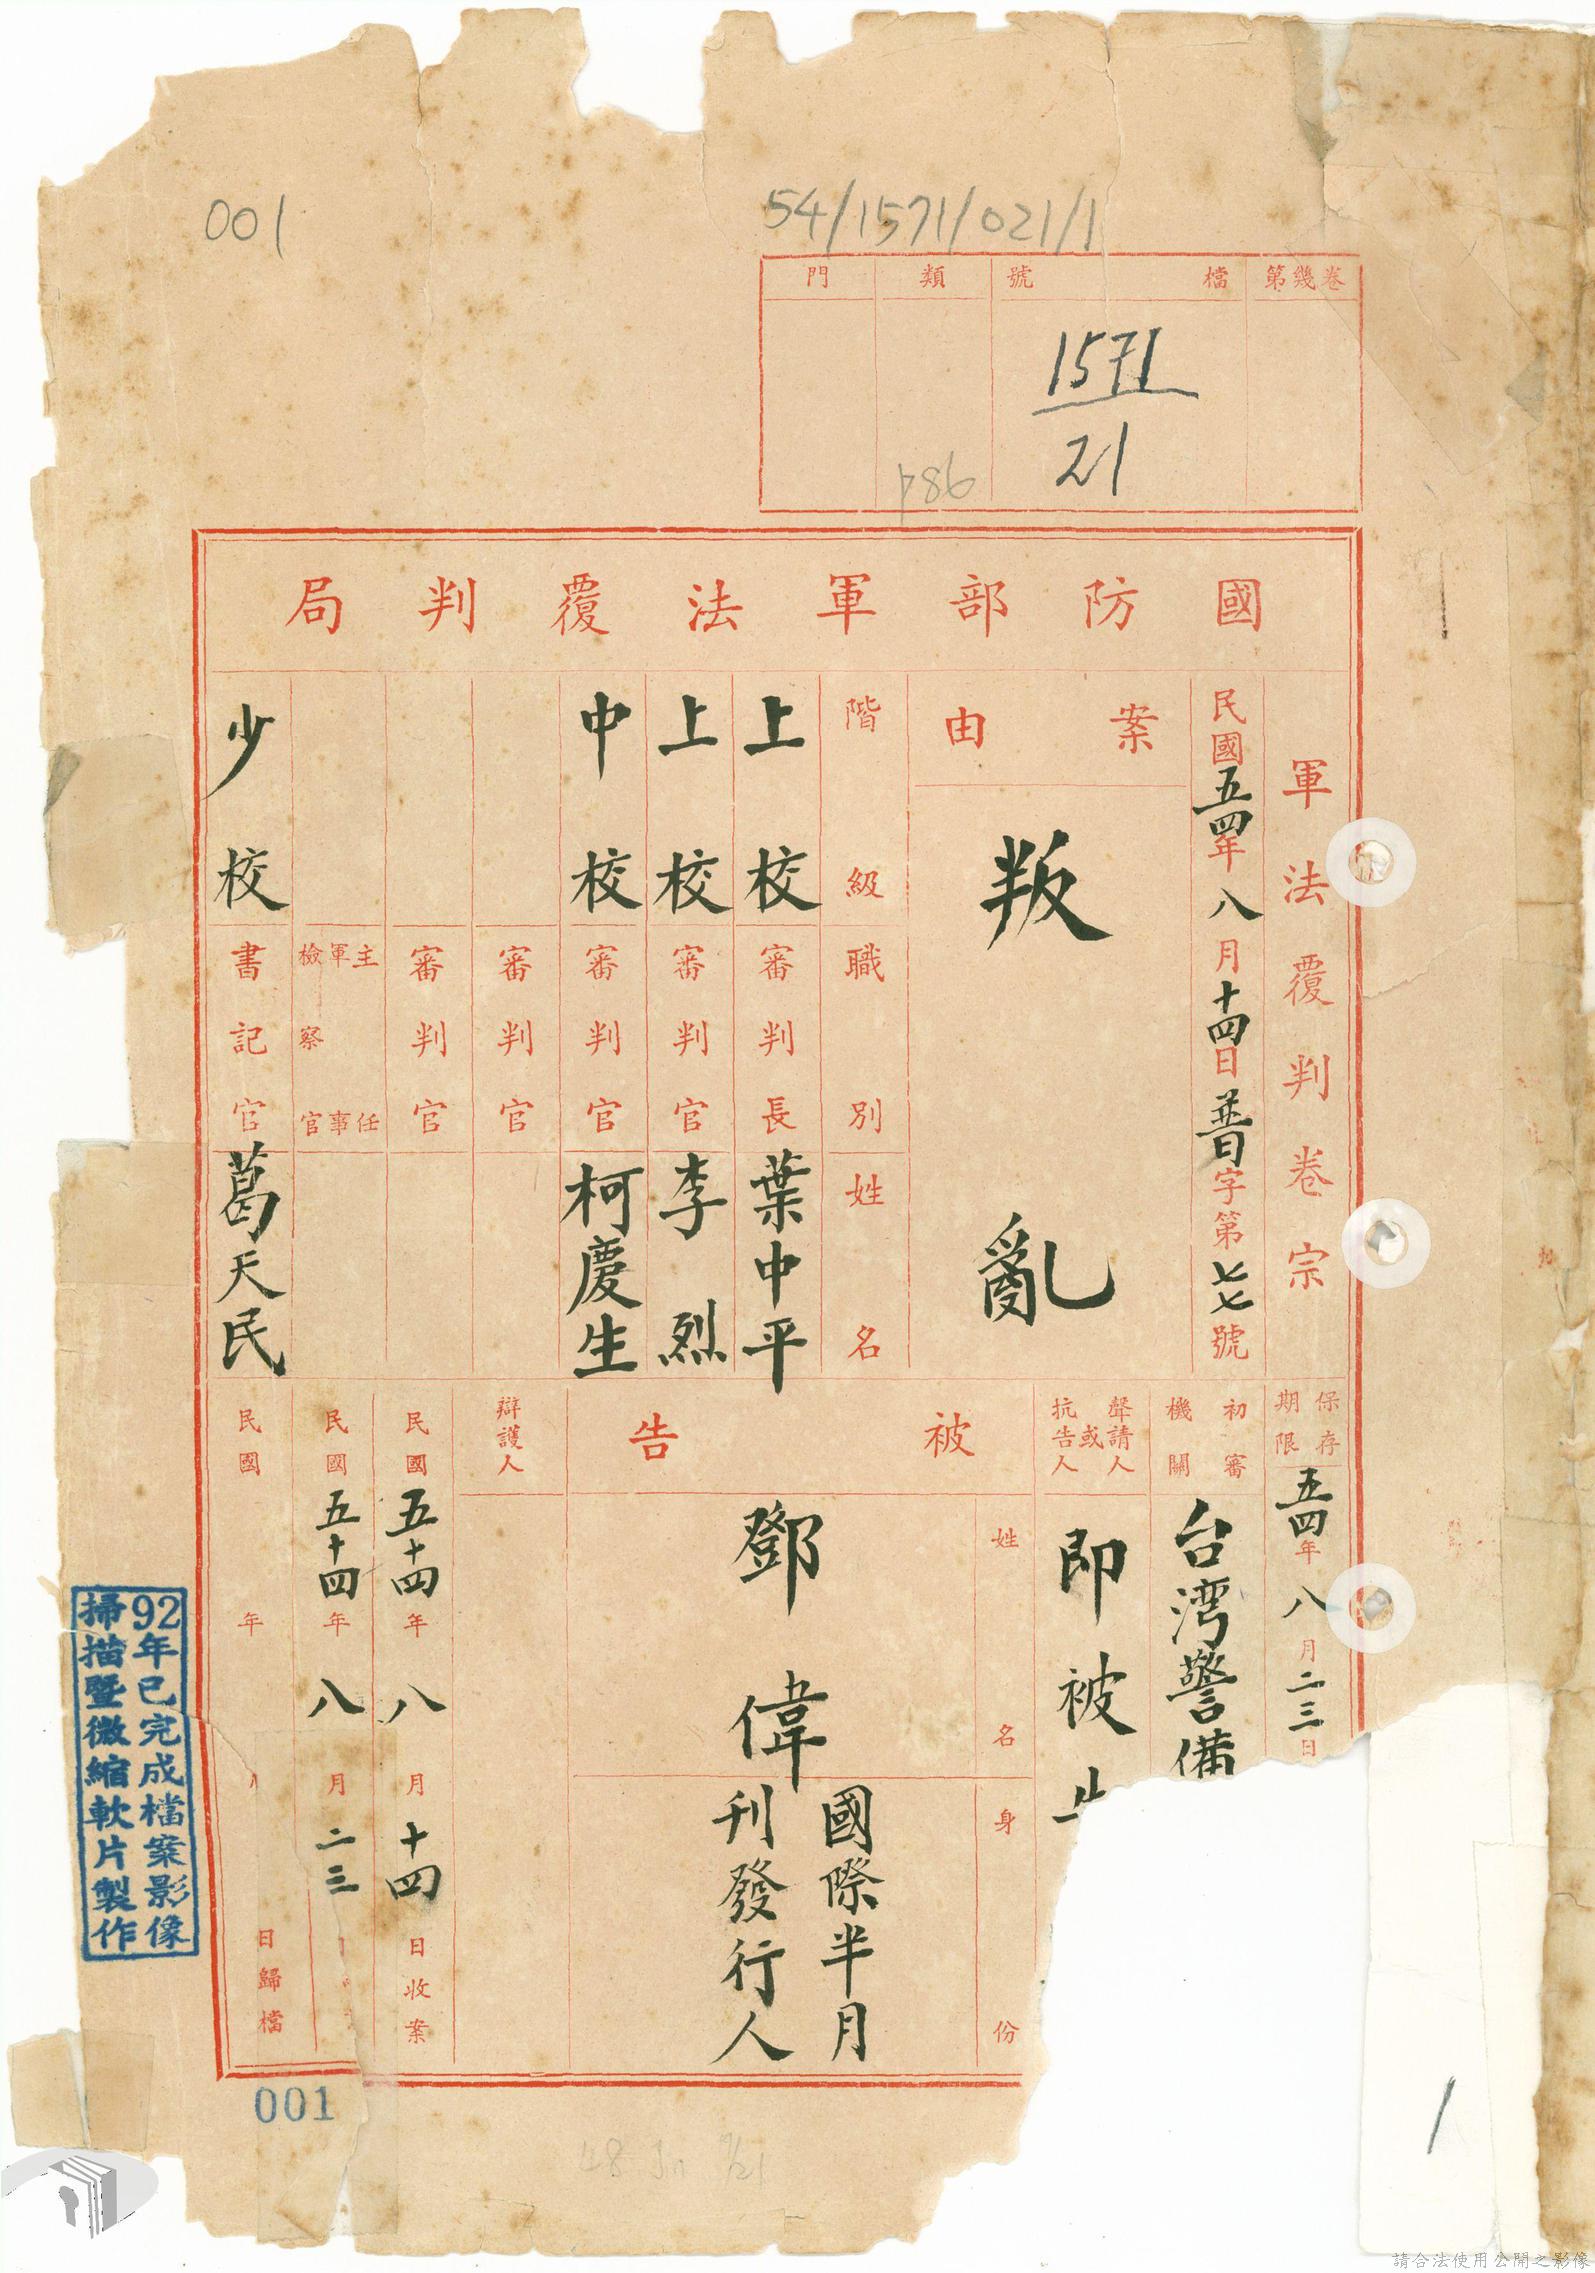 001
54/1571/021/1
第幾卷
檔號
類
門
1571
21
p86
國防部軍法覆判局
軍法覆判卷宗
民國五四年八月十四日普字第七七號
案由
叛亂
階級 職別 姓名
上校 審判長 葉中平
上校 審判官 李烈
中校 審判官 柯慶生
審判官
審判官
主任軍事檢察官
少校 書記官 葛天民
保存期限 五四年八月二三日
初審機關 台湾警備
聲請人或抗告人 即被
被告
姓名 鄧偉
身份 國際半月
刊發行人
辯護人
民國五十四年八月十四日收案
民國五十四年八月二三
民國 年 月 日歸檔
92年已完成檔案影像
掃描暨微縮軟片製作
001
1
請合法使用公開之影像